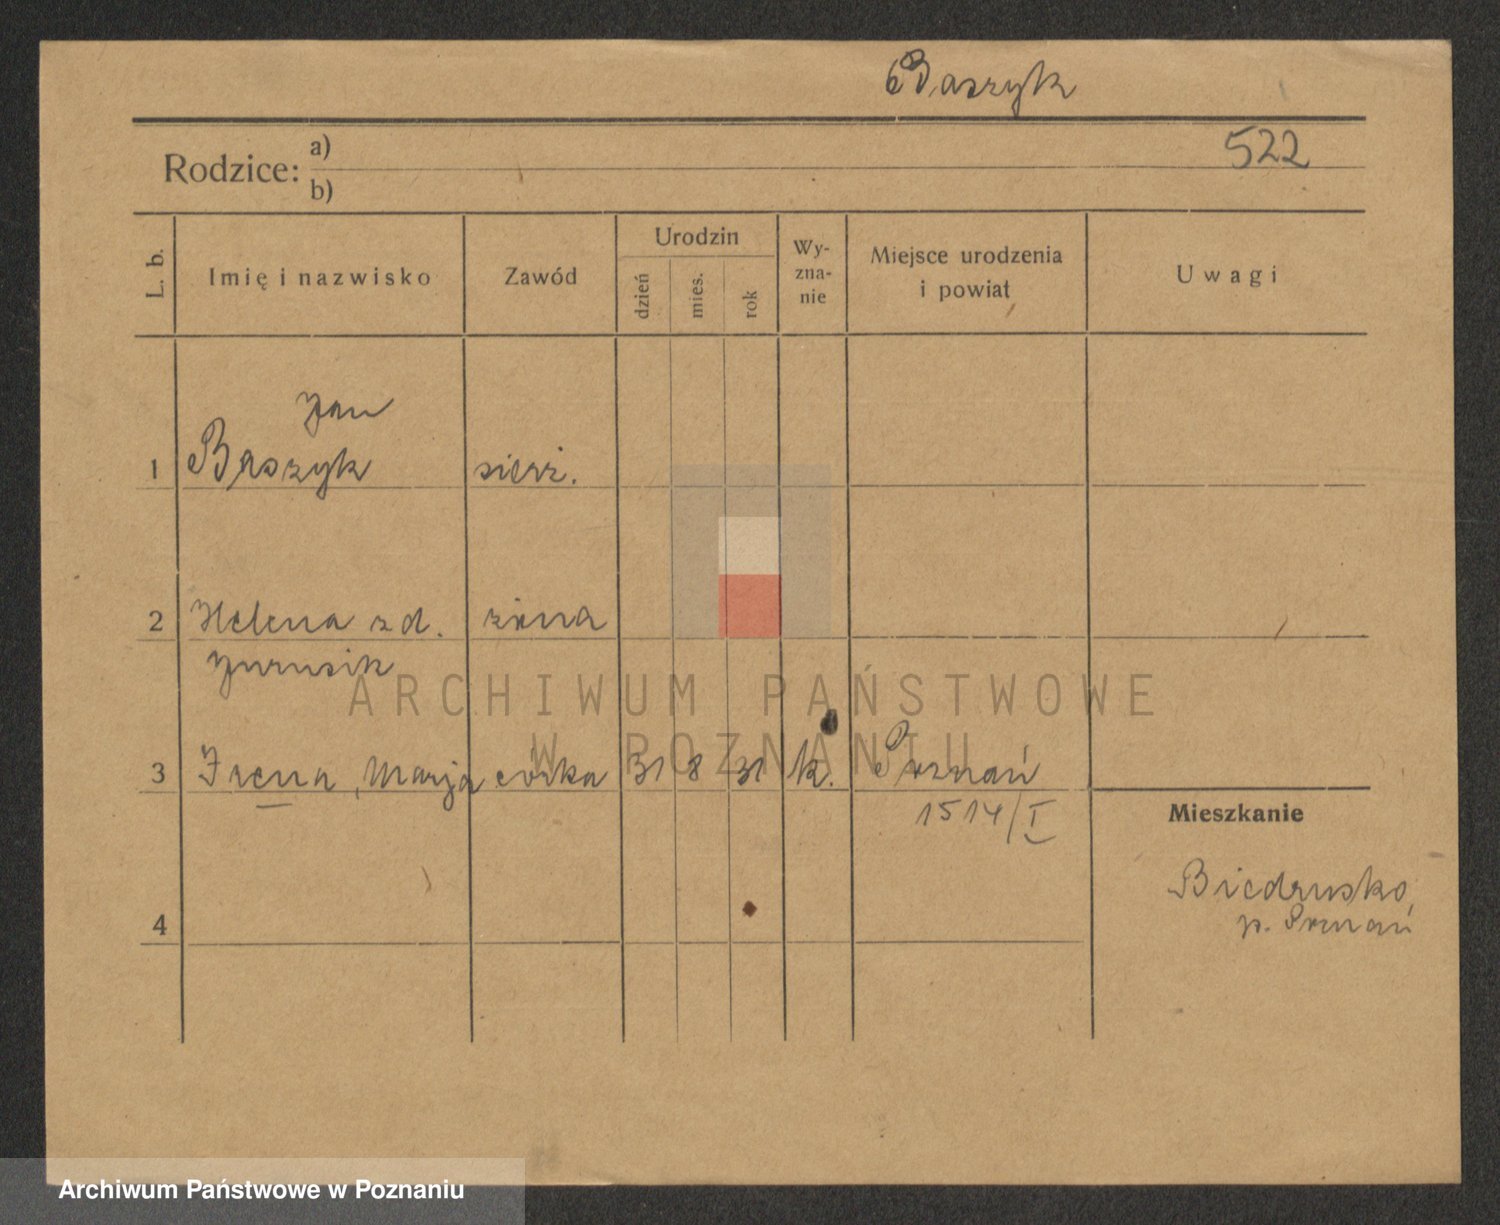 Baszyk
522
Rodzice: a)
b)
L. b.
Imię i nazwisko
Zawód
Urodzin
dzień
mies.
rok
Wy-
zna-
nie
Miejsce urodzenia
i powiat
Uwagi
Jan
1 Baszyk sierż.
2 Helena z d. żona
3 Irena, Marja córka 31 8 31 k. Poznań
1514/I
Mieszkanie
Biedrusko,
p. Poznań
4
ARCHIWUM PAŃSTWOWE
W POZNANIU
Archiwum Państwowe w Poznaniu